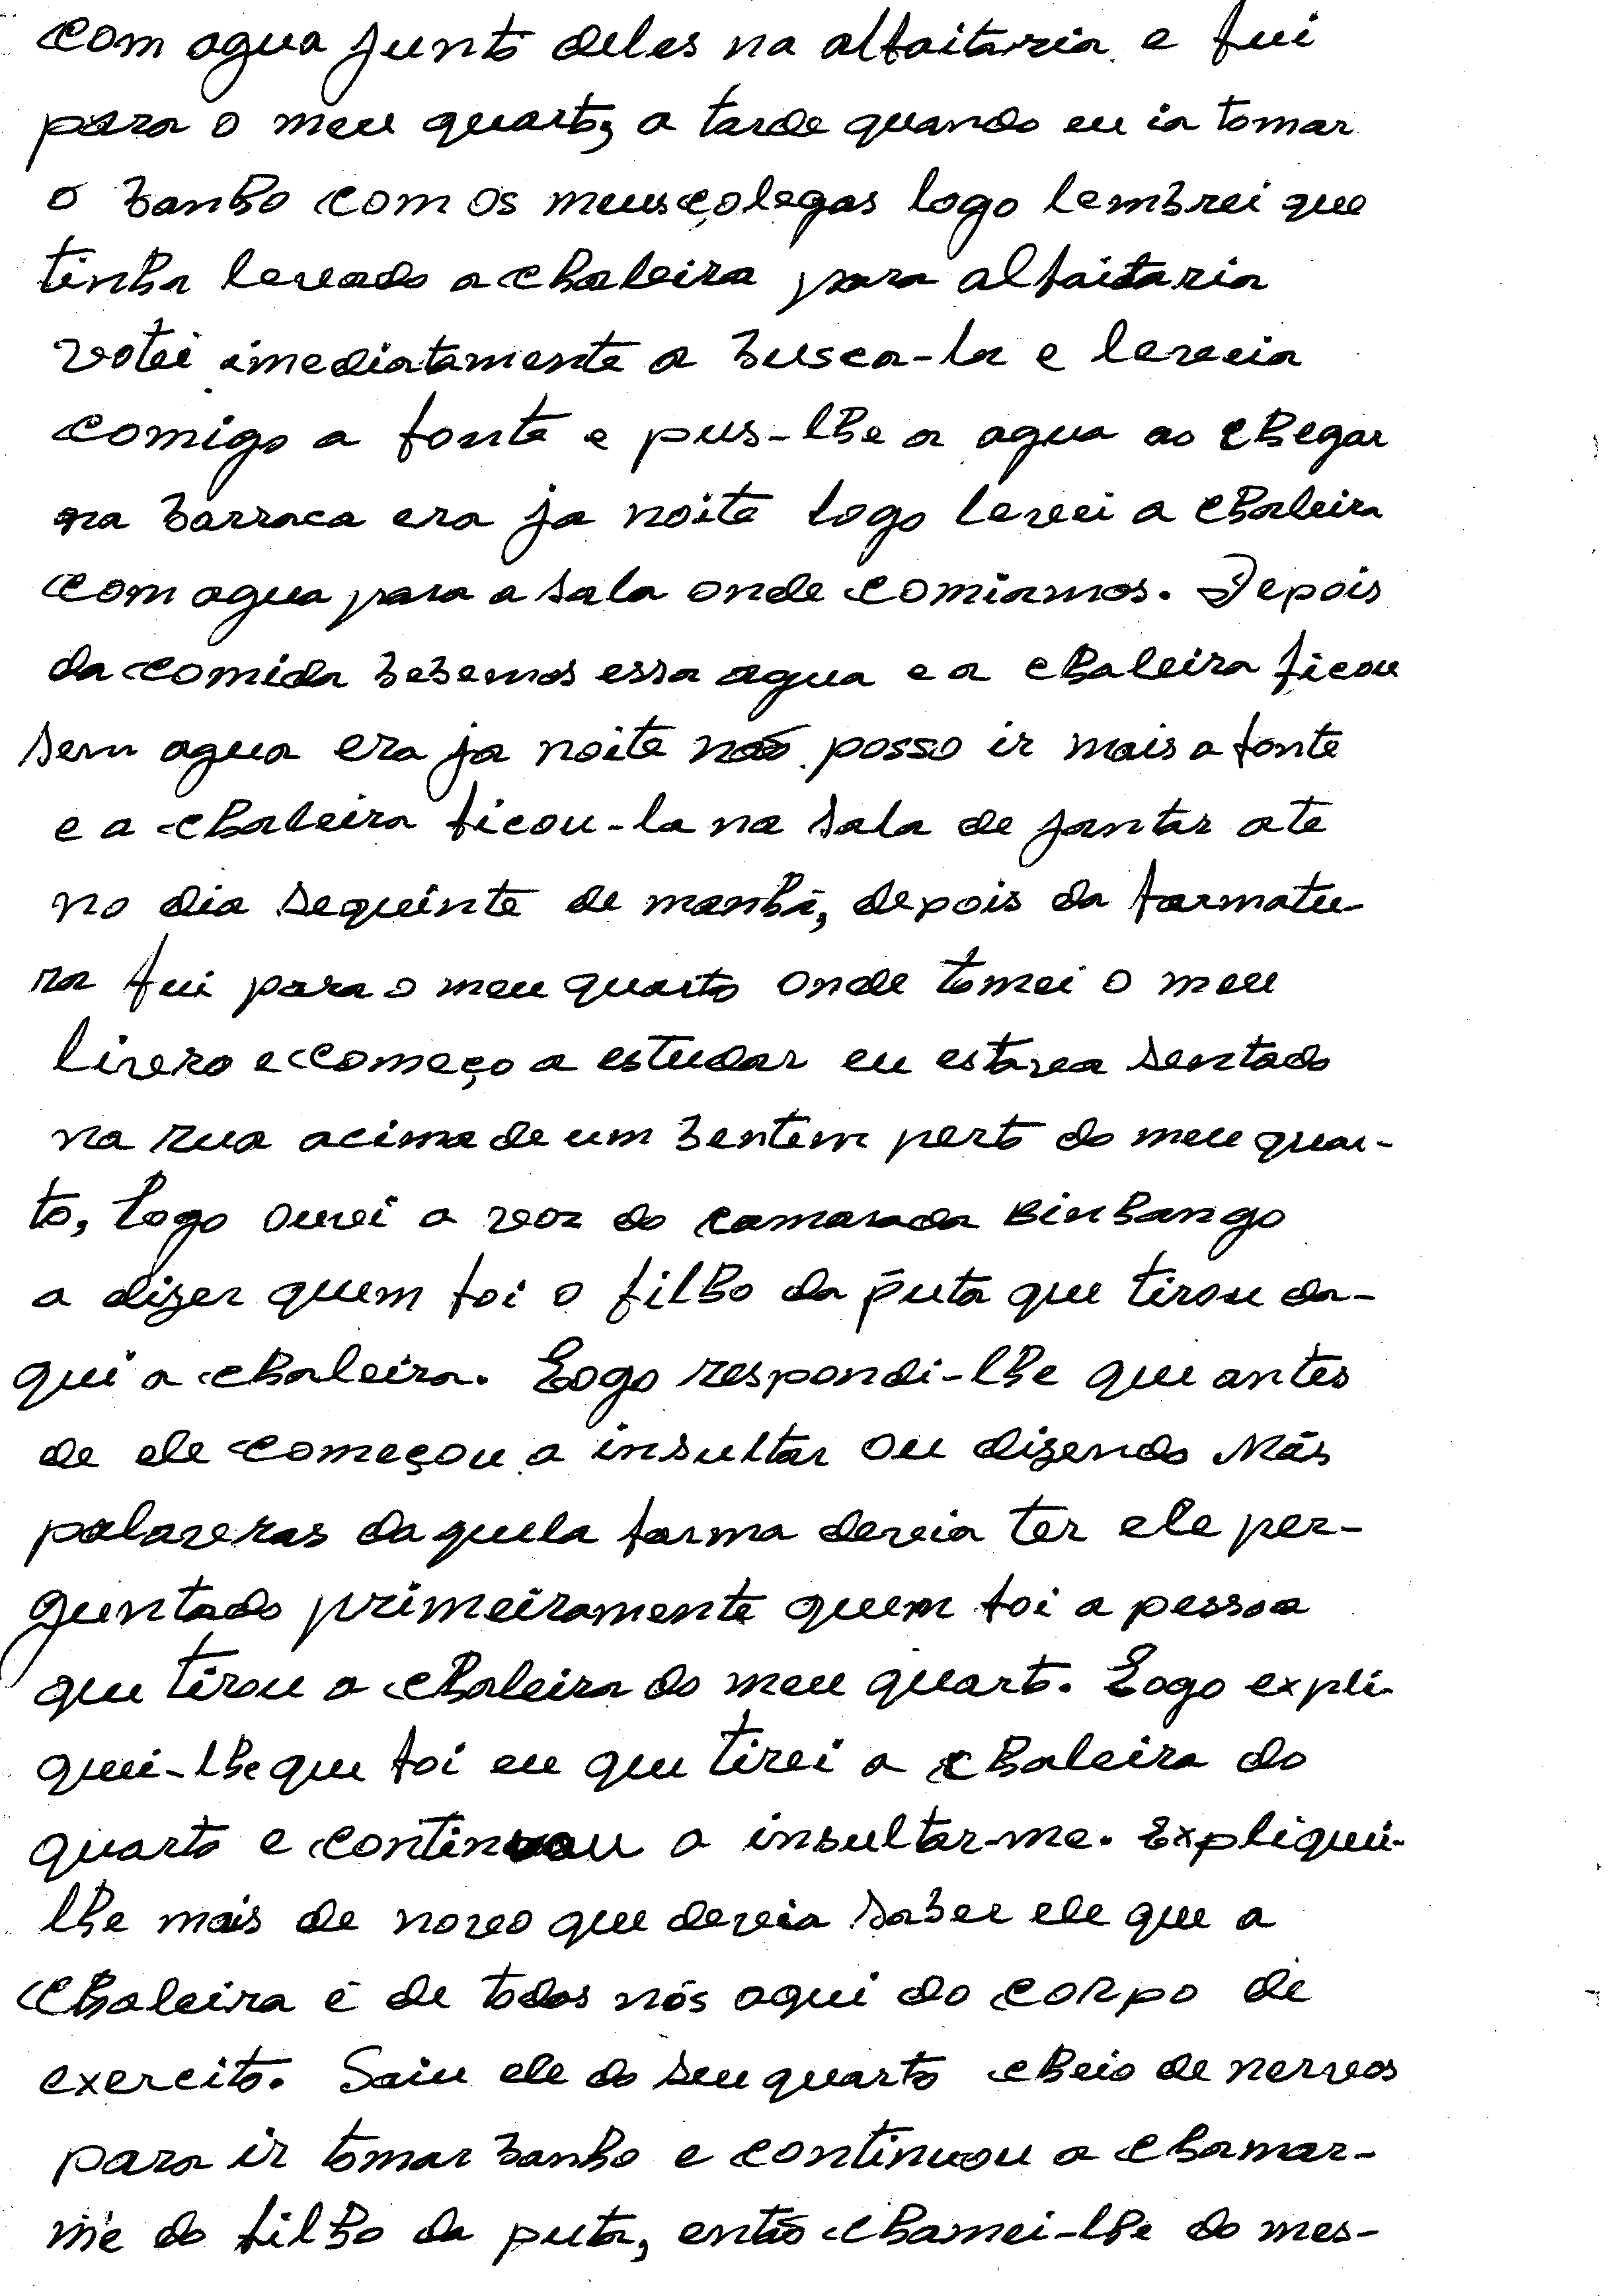 com agua junto deles na alfaitaria e fui
para o meu quarto, a tarde quando eu ia tomar
o banho com os meus colegas logo lembrei que
tinha levado a chaleira para alfaitaria
votei imediatamente a busca-la e levei a
comigo a fonte e pus-lhe a agua ao chegar
na barraca era ja noite logo levei a chaleira
com agua para a sala onde comiamos. Depois
da comida bebemos essa agua e a chaleira ficou
sem agua era ja noite não posso ir mais a fonte
e a chaleira ficou-la na sala de jantar ate
no dia seguinte de manhã, depois da formatu-
ra fui para o meu quarto onde tomei o meu
livro e começo a estudar eu estava sentado
na rua acima de um bentem perto do meu quar-
to, logo ouvi a voz do camarada Binhango
a dizer quem foi o filho da puta que tirou da-
qui a chaleira. Logo respondi-lhe que antes
de ele começou a insultar ou dizendo más
palavras daquela forma devia ter ele per-
guntado primeiramente quem foi a pessoa
que tirou a chaleira do meu quarto. Logo expli-
quei-lhe que foi eu que tirei a chaleira do
quarto e continuou a insultar-me. Expliquei-
lhe mais de novo que devia saber ele que a
chaleira é de todos nós aqui do corpo de
exercito. Saiu ele do seu quarto cheio de nervos
para ir tomar banho e continuou a chamar-
me do filho da puta, então chamei-lhe do mes-